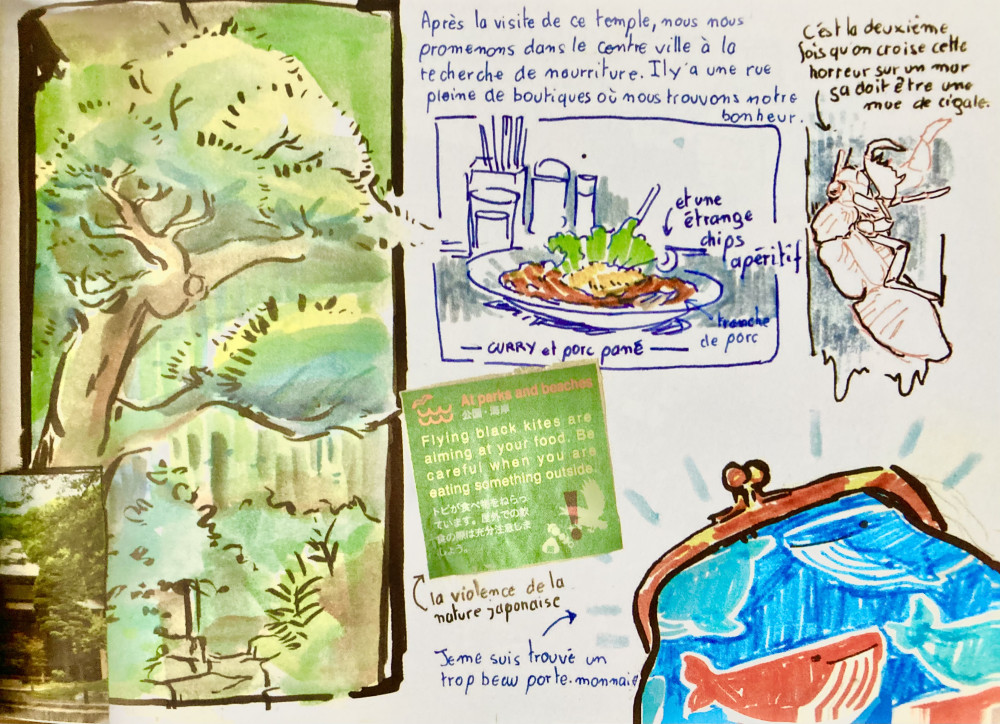 Après la visite de ce temple, nous nous
promenons dans le centre ville à la
recherche de nourriture. Il y'a une rue
pleine de boutiques où nous trouvons notre
bonheur.
c'est la deuxième
fois qu'on croise cette
horreur sur un mur
ça doit être une
mue de cigale.
et une
étrange
chips
apéritif
tranche
de porc
CURRY et porc pané
At parks and beaches
公園・海岸
Flying black kites are
aiming at your food. Be
careful when you are
eating something outside.
トビが食べ物をねらっ
ています。屋外での飲
食の際は充分注意しま
しょう。
la violence de la
nature japonaise
Je me suis trouvé un
trop beau porte-monnaie